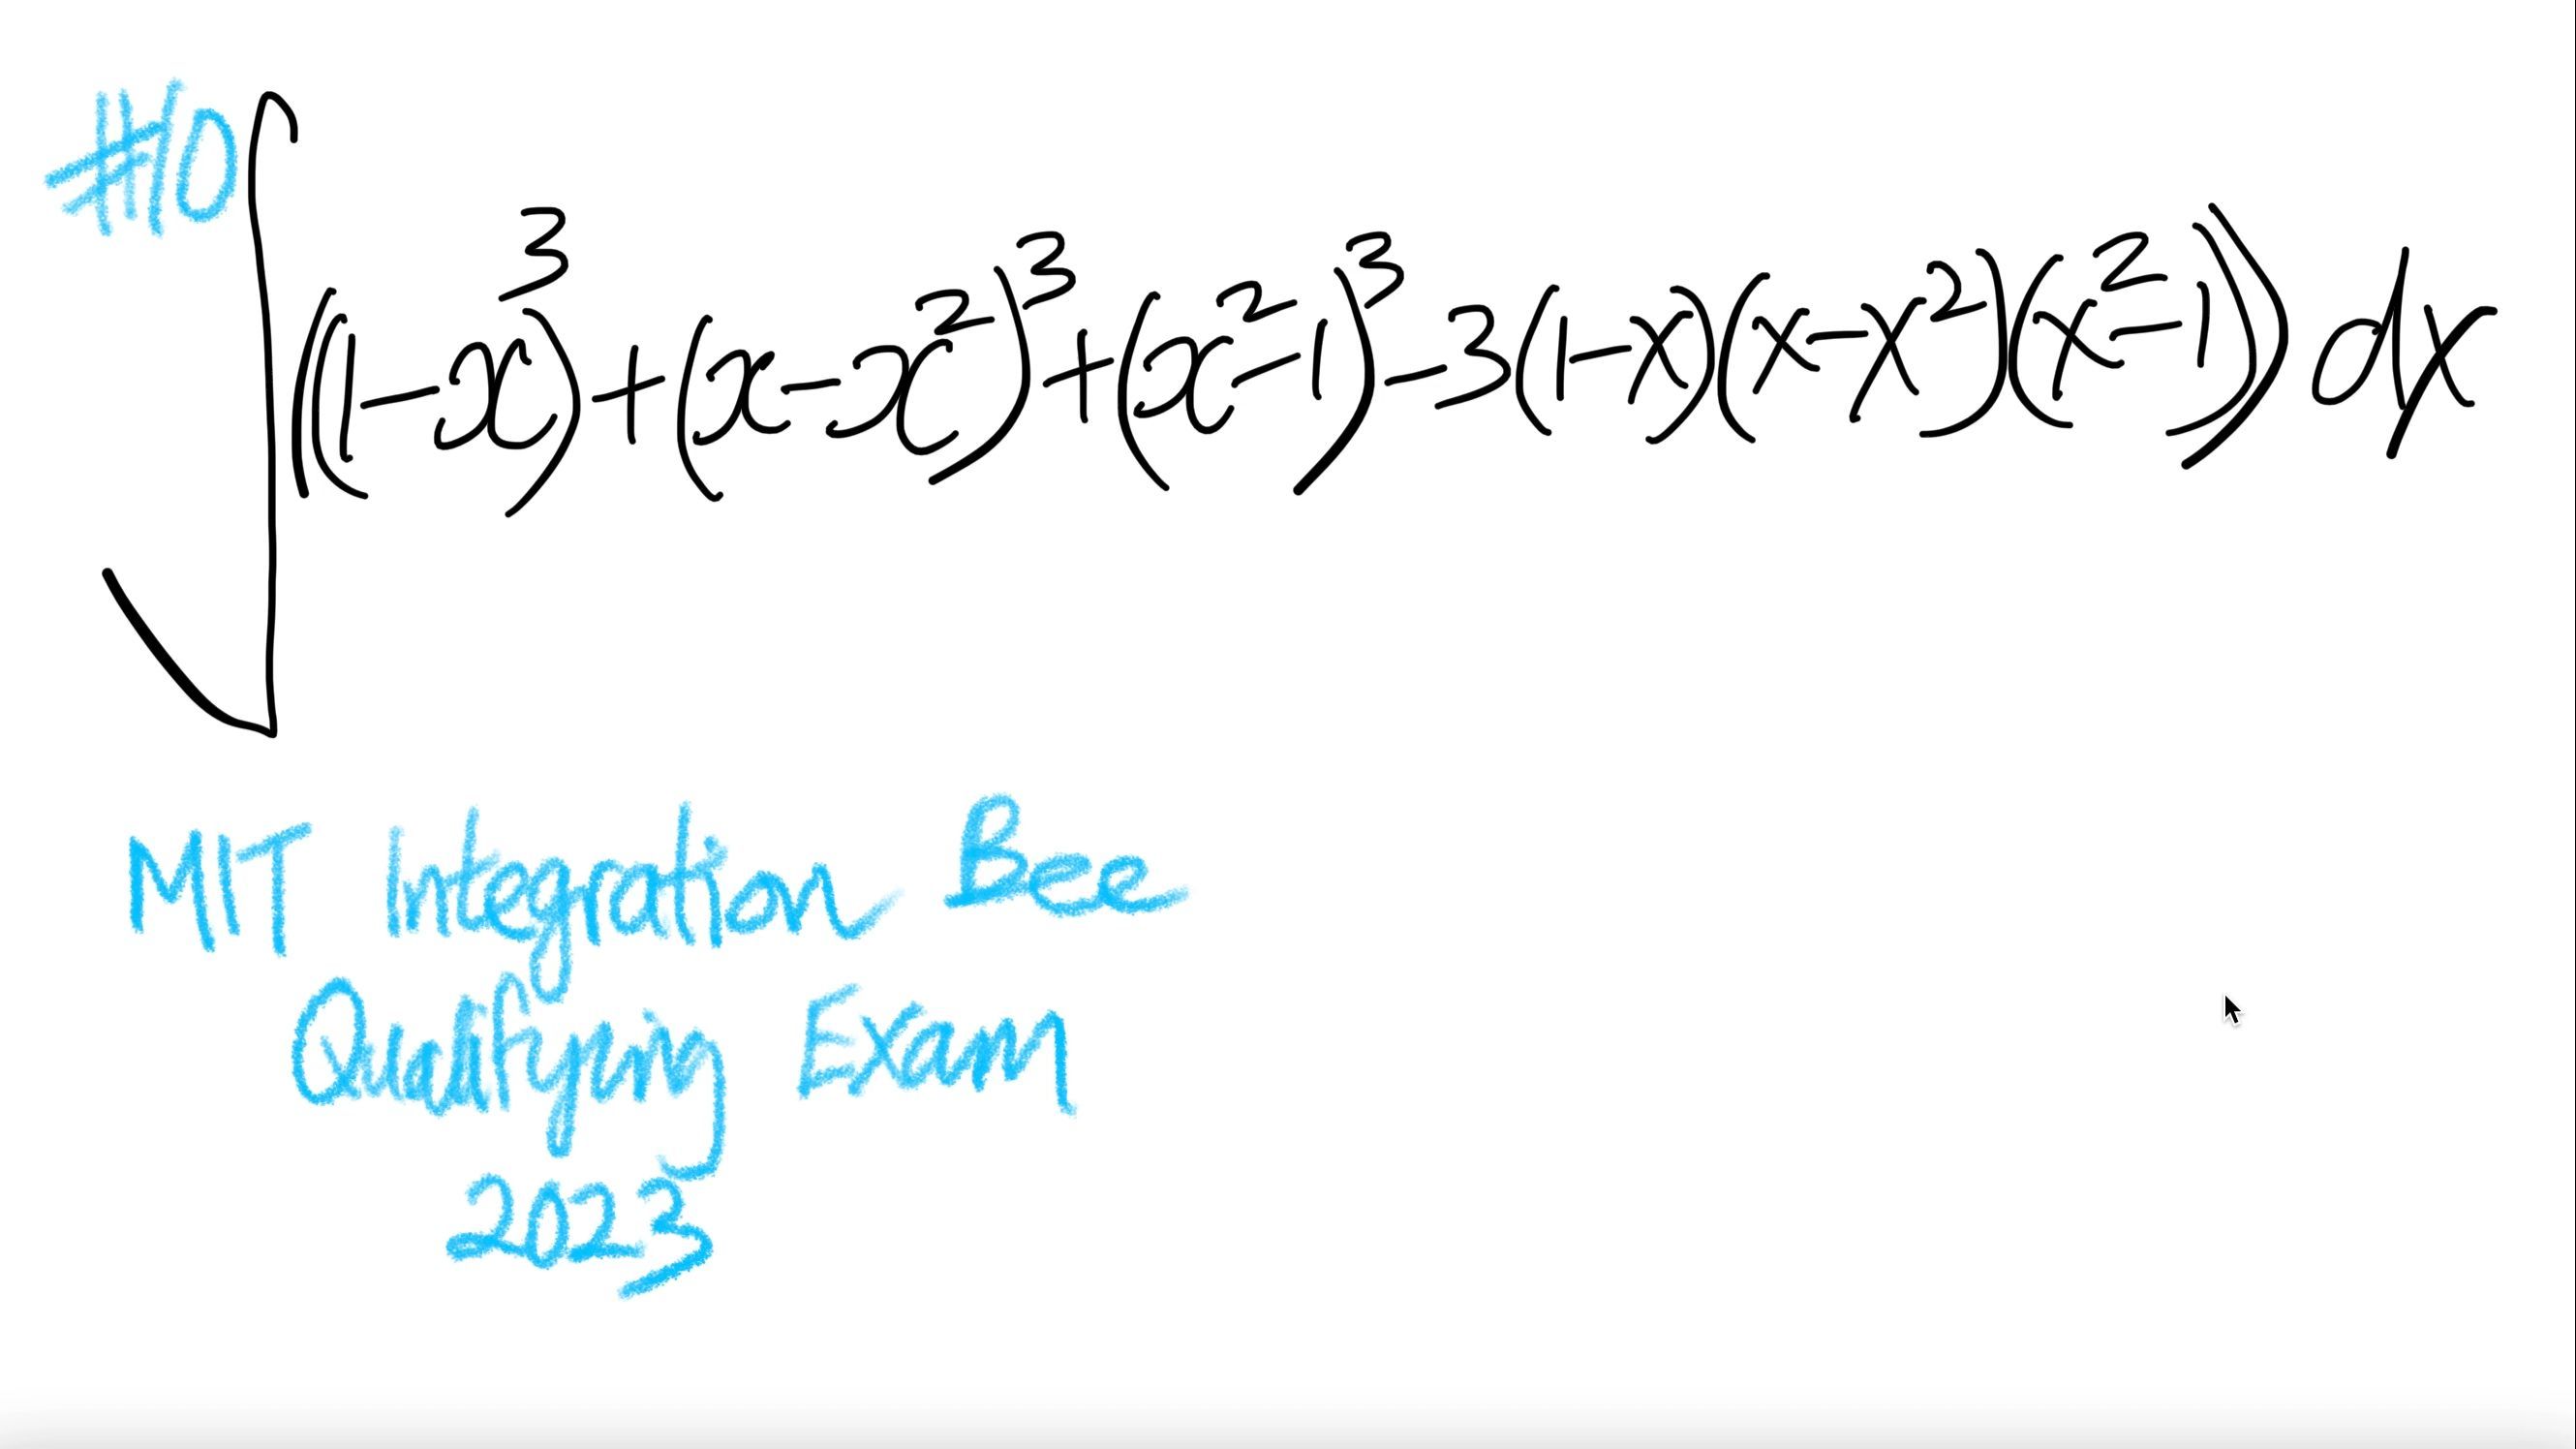 #10
∫((1-x)³+(x-x²)³+(x²-1)³-3(1-x)(x-x²)(x²-1))dx
MIT Integration Bee
Qualifying Exam
2023